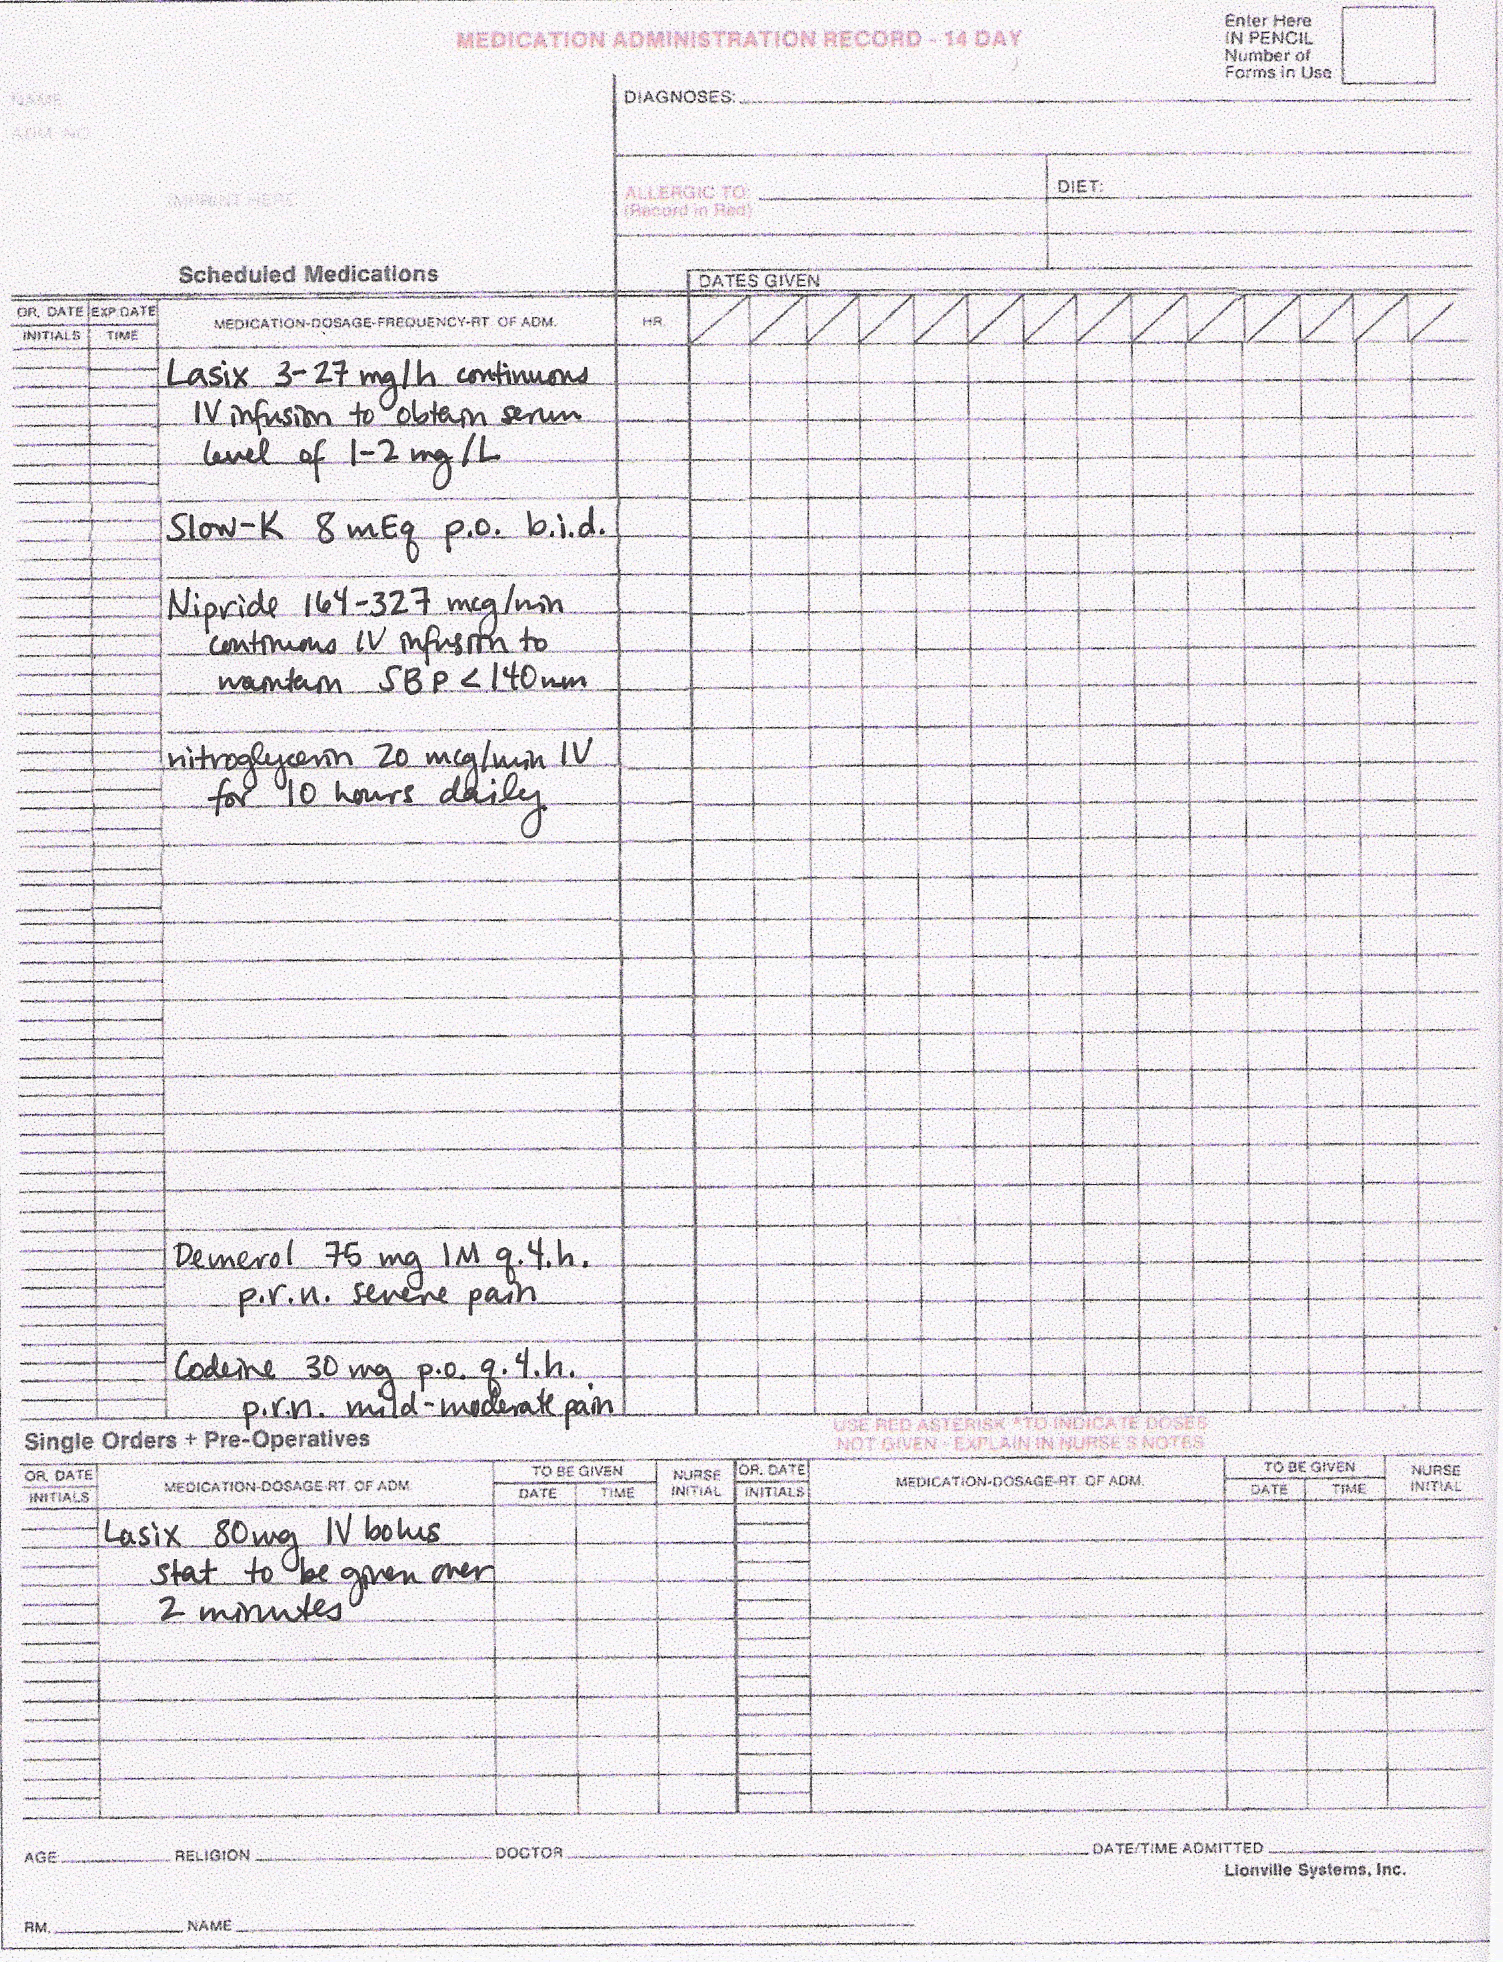 MEDICATION ADMINISTRATION RECORD - 14 DAY
Enter Here
IN PENCIL
Number of
Forms in Use
NAME
ADM. NO.
IMPRINT HERE
DIAGNOSES:
ALLERGIC TO:
(Record in Red)
DIET:
Scheduled Medications
DATES GIVEN
OR. DATE EXP.DATE
INITIALS TIME
MEDICATION-DOSAGE-FREQUENCY-RT. OF ADM.
HR.
Lasix 3-27 mg/h continuous
IV infusion to obtain serum
level of 1-2 mg/L
Slow-K 8 mEq p.o. b.i.d.
Nipride 164-327 mcg/min
continuous IV infusion to
maintain SBP < 140 mm
nitroglycerin 20 mcg/min IV
for 10 hours daily.
Demerol 75 mg IM q.4.h.
p.r.n. severe pain
Codeine 30 mg p.o. q.4.h.
p.r.n. mild-moderate pain
USE RED ASTERISK *TO INDICATE DOSES
NOT GIVEN - EXPLAIN IN NURSE'S NOTES
Single Orders + Pre-Operatives
OR. DATE
INITIALS
MEDICATION-DOSAGE-RT. OF ADM.
TO BE GIVEN
DATE TIME
NURSE
INITIAL
OR. DATE
INITIALS
MEDICATION-DOSAGE-RT. OF ADM.
TO BE GIVEN
DATE TIME
NURSE
INITIAL
Lasix 80 mg IV bolus
stat to be given over
2 minutes
AGE RELIGION DOCTOR DATE/TIME ADMITTED
Lionville Systems, Inc.
RM. NAME